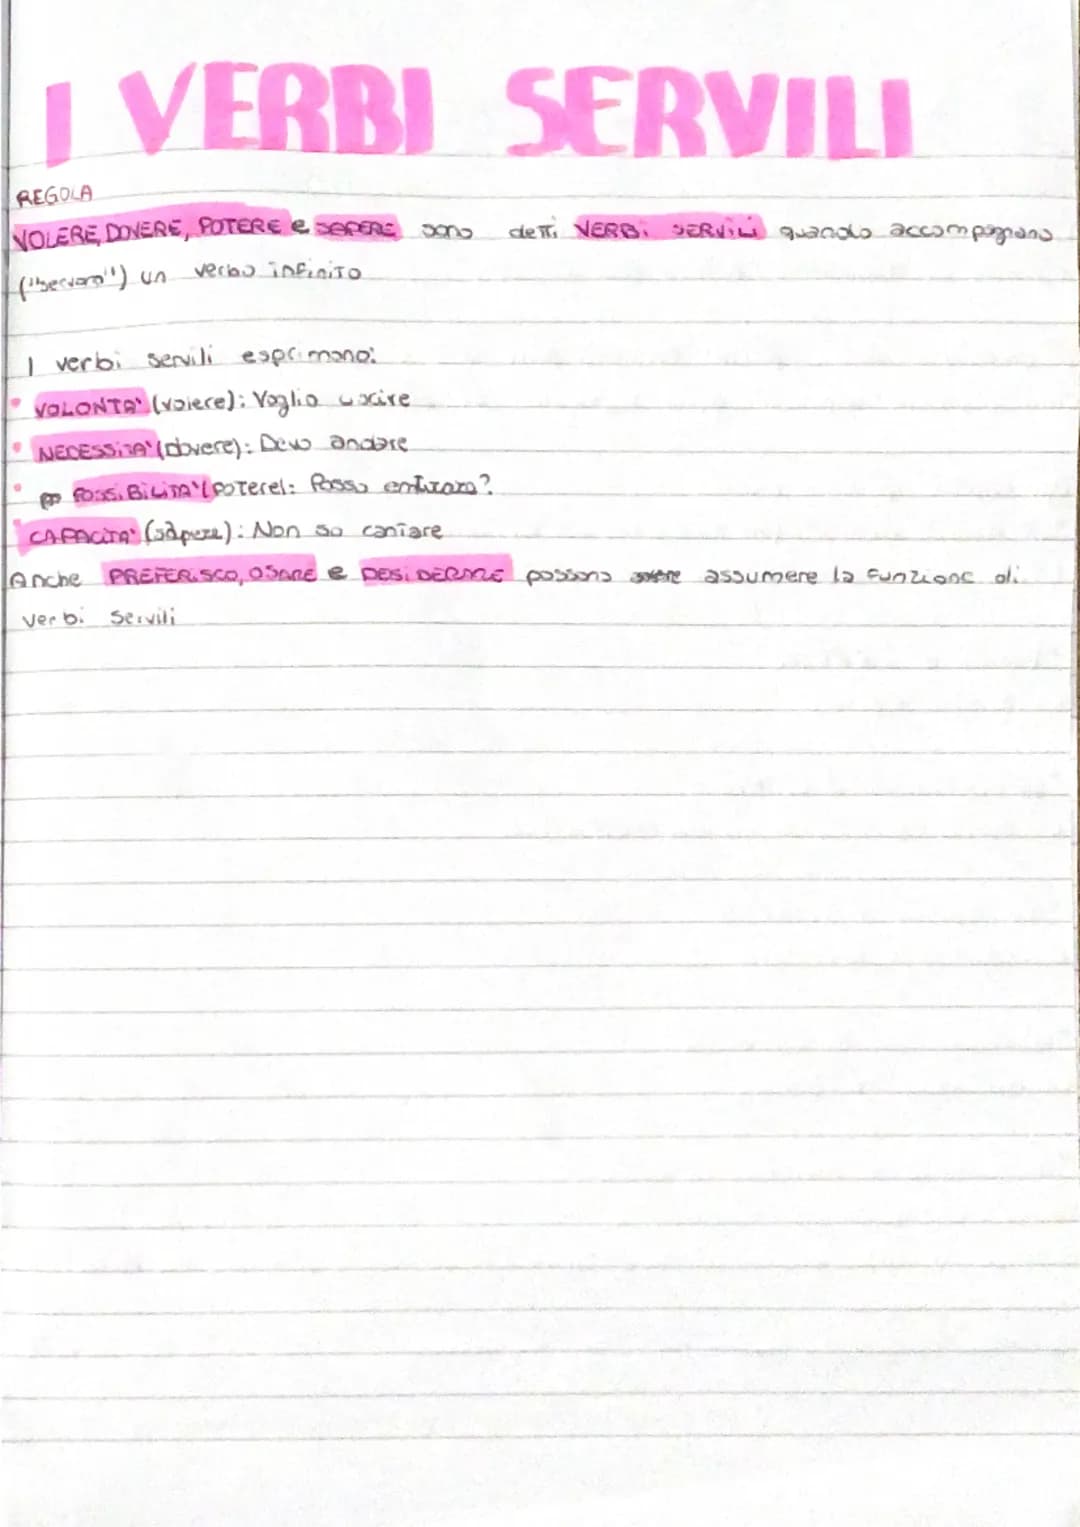 I VERBI SERVILI
REGOLA
VOLERE, DOVERE, POTERE e SAPERE sono detti VERBI SERVILI quando accompagnano
("servono") un verbo infinito
I verbi servili esprimono:
• VOLONTA' (volere): Voglio uscire
• NECESSITA' (dovere): Devo andare
• POSSIBILITA' (potere): Posso
CAPACITA' (sapere): Non so cantare
Anche PREFERISCO, OSARE e DESIDERARE possono assumere la funzione di
verbi servili